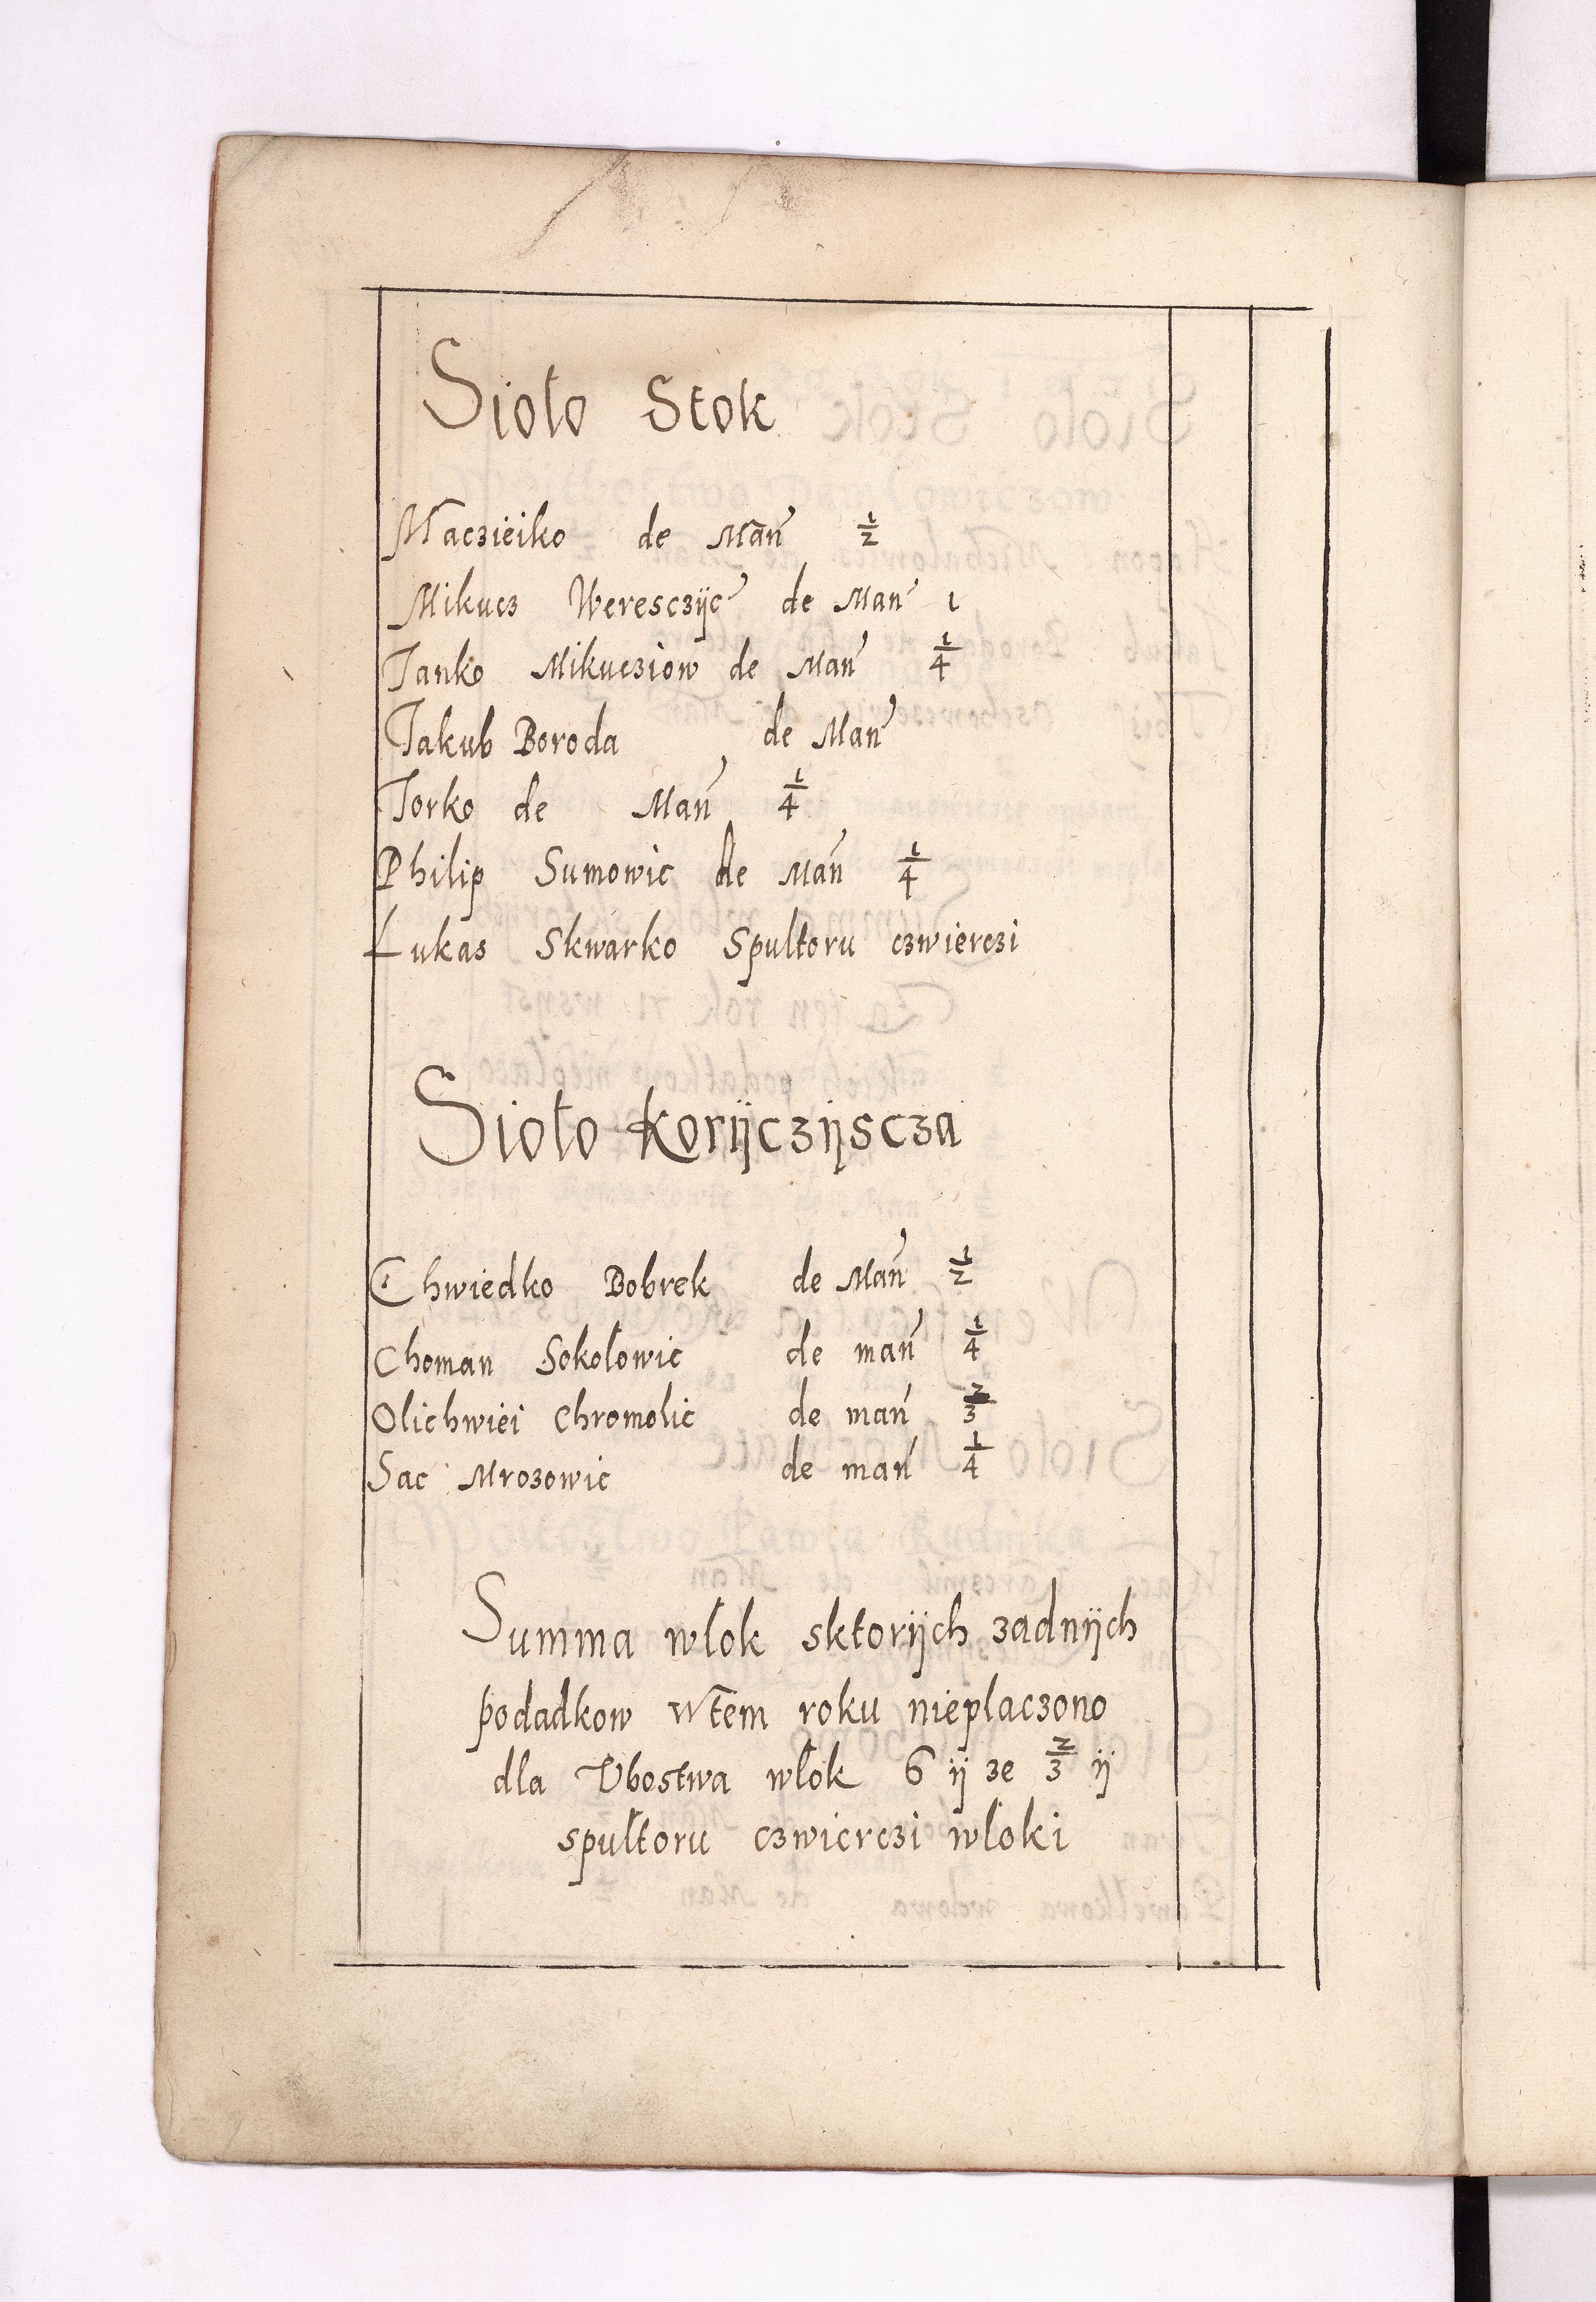 Sioło Stok
Maczieiko de Man̄ 1/2
Mikucz Weresczÿc de Man̄ 1
Janko Mikucziow de Man̄ 1/4
Jakub Boroda de Man̄
Jorko de Man̄ 1/4
Philip Sumowic de Mań 1/4
Łukas Skwarko Spułtoru czwierczi
Sioło Korÿczÿscza
Chwiedko Bobrek de Mań 1/2
Choman Sokołowic de mań 1/4
Olichwiei Chromolic de mań 2/3
Sac Mrozowic de mań 1/4
Summa włok sktorÿch zadnÿch
podadkow wtem roku nieplaczono
dla Vbostwa włok 6 ÿ ze 2/3 ÿ
spułtoru czwierczi włoki